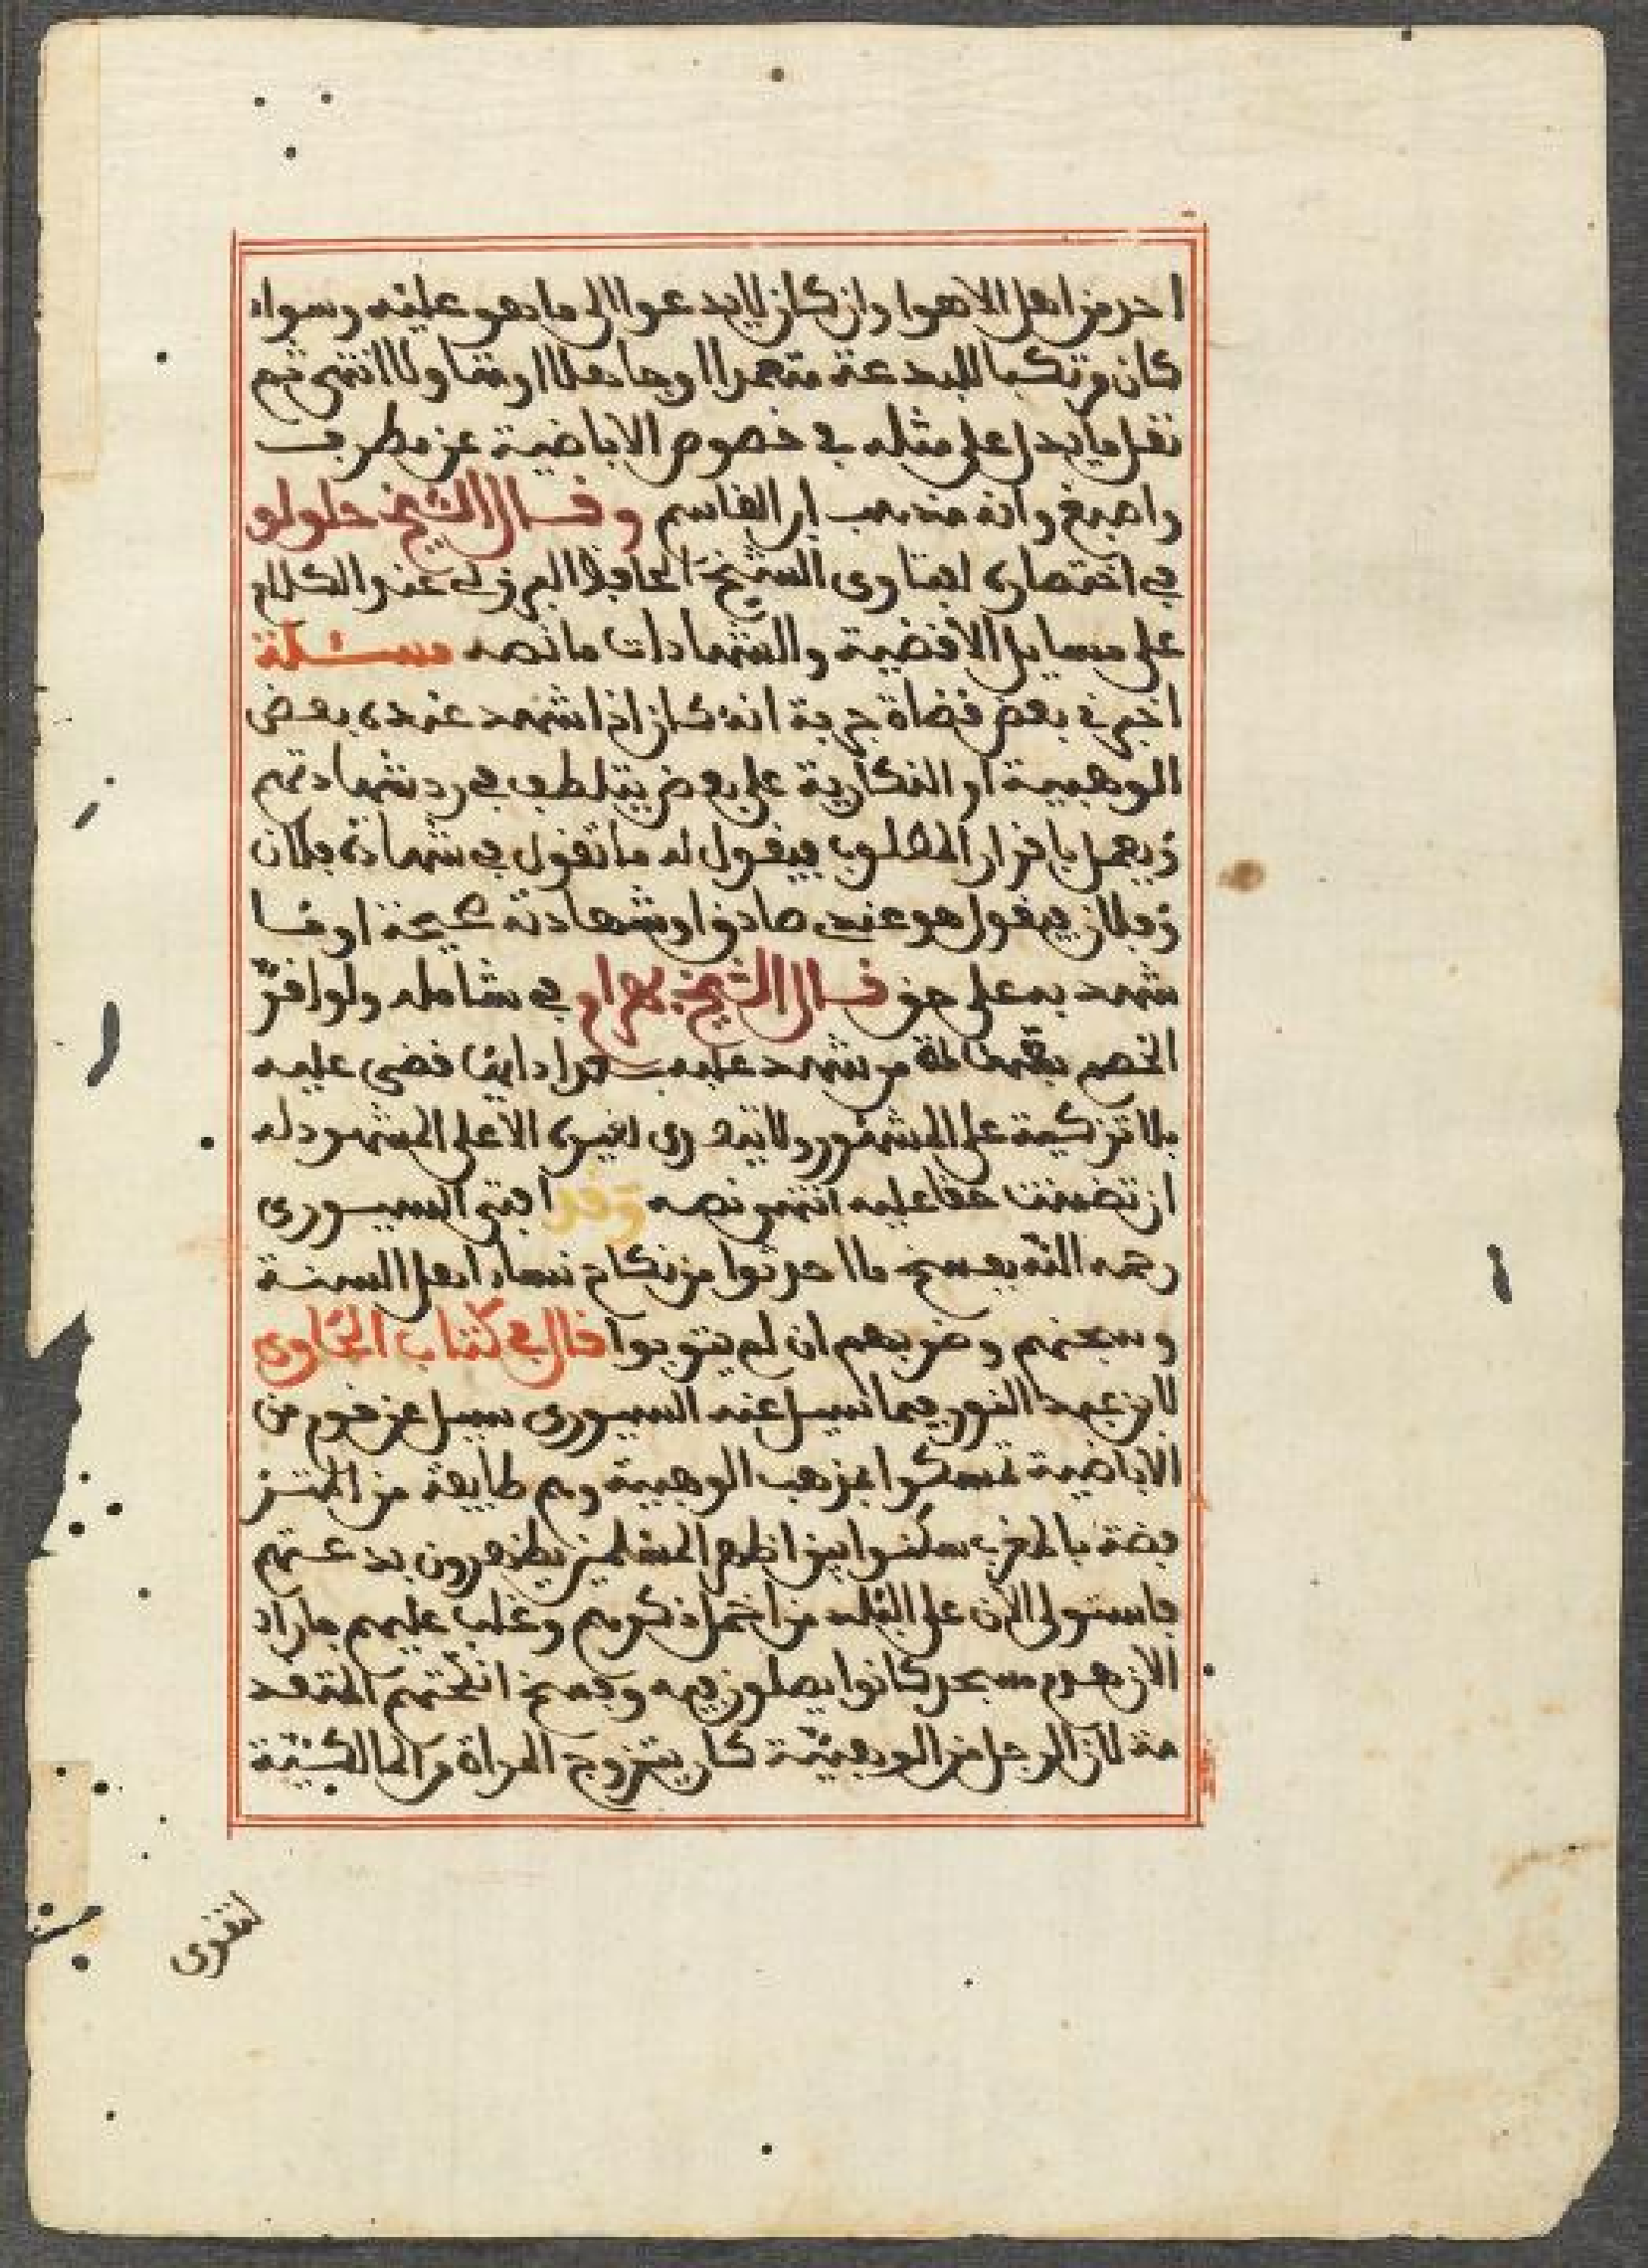 احد من اهل الاهوا وان كان لا يدعوا الى ما هو عليه وسواء
كان مرتكبا للبدعة متعمدا او جاهلا او متاولا انتهى ثم
نقل ما يدل على مثله في خصوص الاباضية عن مطرف
واصبغ وانه مذهب ابن القاسم وقال الشيخ حلولو
في اختصاره لفتاوى الشيخ الحافظ البرزلي عند الكلام
على مسايل الاقضية والشهادات ما نصه مسئلة
اخبرني بعض قضاة جربة انه كان اذا شهد عنده بعض
الوهبية او النكارية على بعض يتلطف في رد شهادتهم
ويعمل باقرار المطلوب فيقول له ما تقول في شهادة فلان
وفلان فيقول هو عندي صادق او شهادته صحيحة او ما
شهد به على حق قال الشيخ بهرام في شامله ولو اقر
الخصم بعدالة من شهد عليه قضى عليه
بلا تزكية على المشهور ولا يتعدى لغيره الا على المشهود له
ان تضمنت حقا عليه انتهى نصه وقد افتى السيوري
رحمه الله بفسخ ما احدثوا من نكاح نساء اهل السنة
وسجنهم وضربهم ان لم يتوبوا قال في كتاب الحاوي
لابن عبد النور فيما سيل عنه السيوري سيل عن قوم من
الاباضية تمسكوا بمذهب الوهبية وهم طايفة من
فضة بالمغرب سكنوا بين اظهر المسلمين يظهرون بدعتهم
فاستولى الان على البلد من اخمل ذكرهم وغلب عليهم فاراد
الان هدم مسجد كانوا يصلون فيه وفسخ انكحتهم المتقد
مة لان الرجل من الوهبية كان يتزوج المراة من المالكية
لتقوى